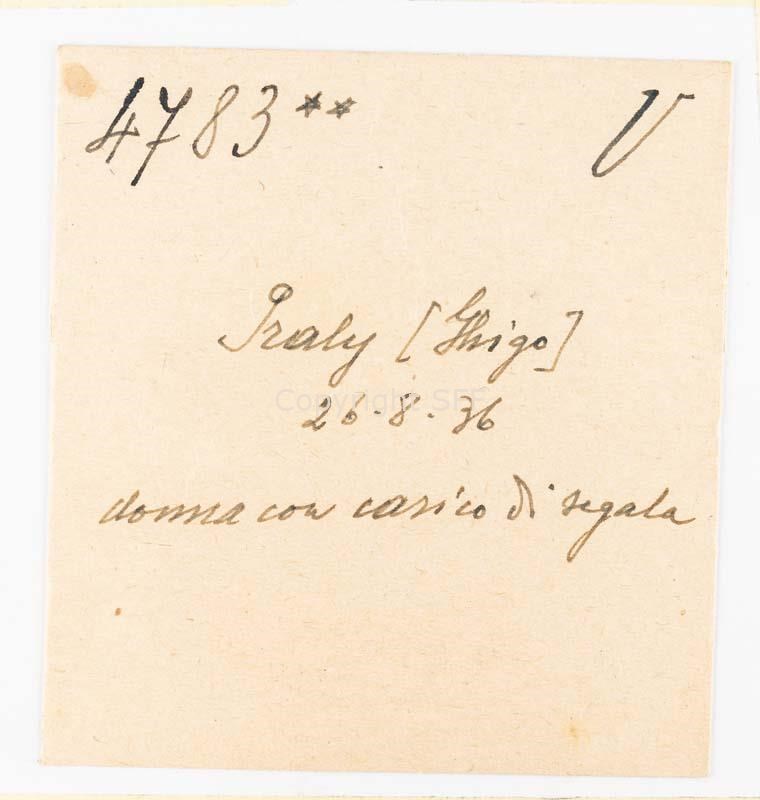 4783** V
Praly [Ghigo]
Copyright SFF
26-8-36
donna con carico di segala